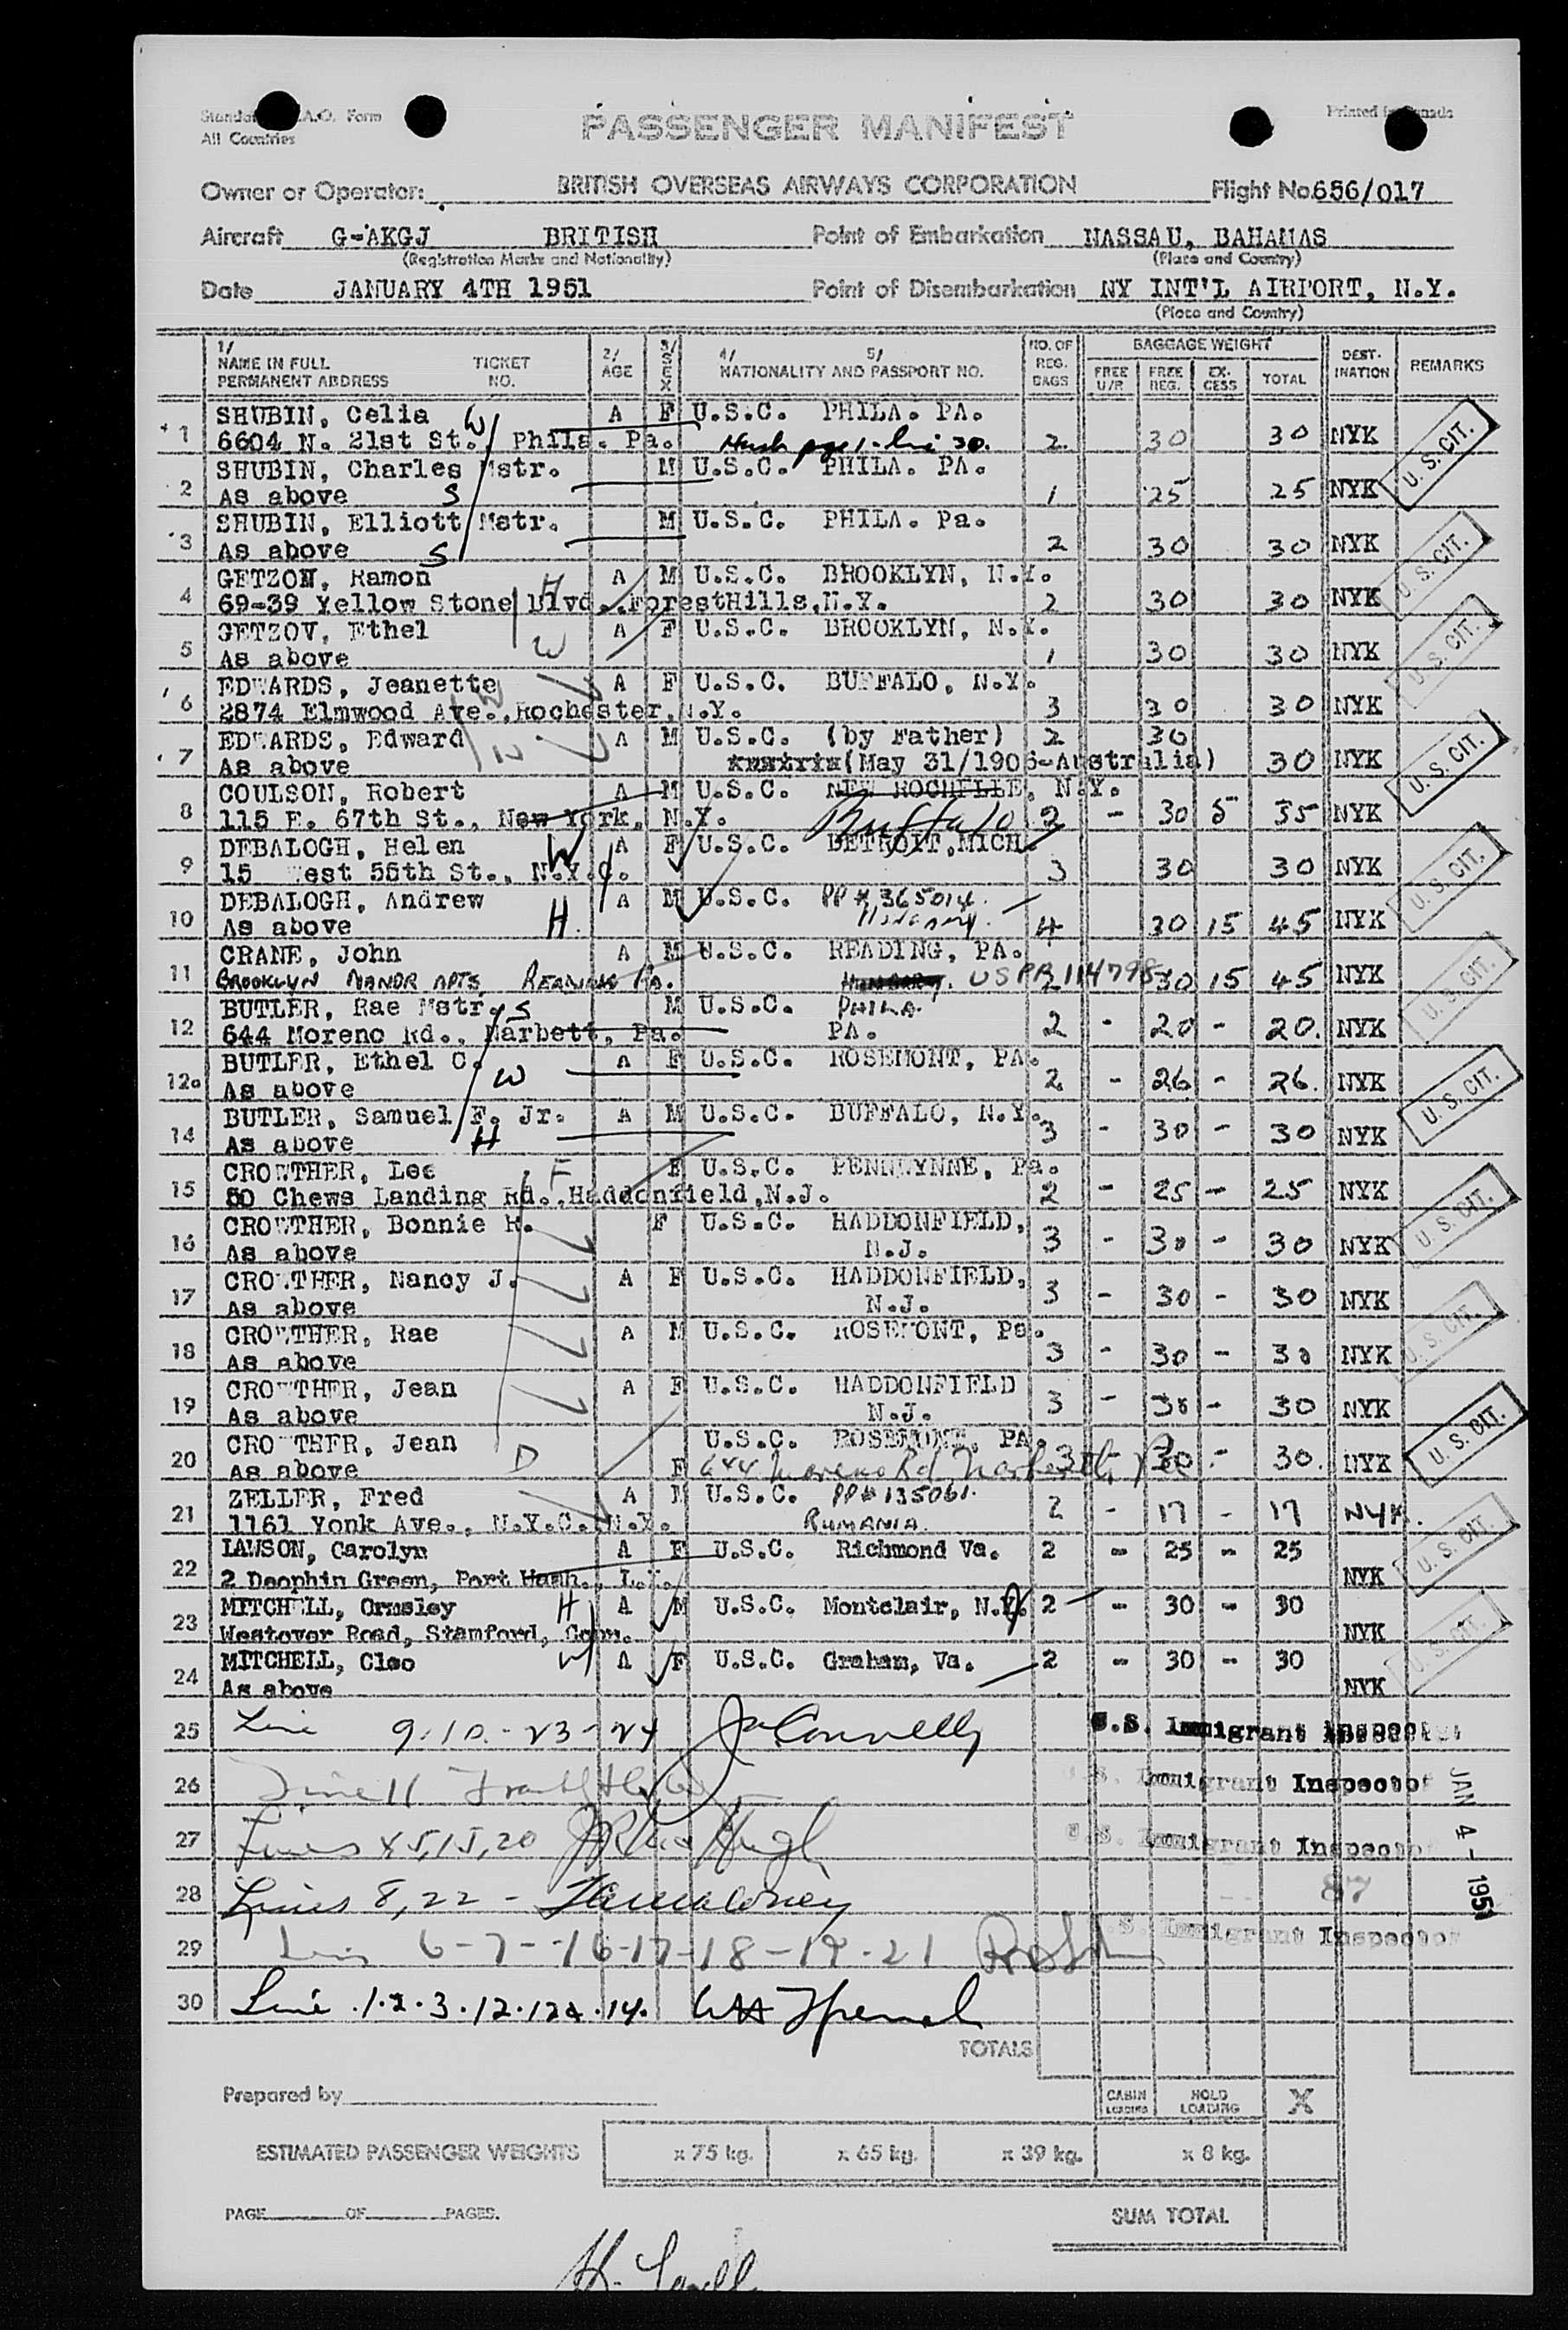 All Countries
Form
Printed in
PASSENGER MANIFEST
Owner or Operator: BRITISH OVERSEAS AIRWAYS CORPORATION Flight No. 656/017
Aircraft G-AKGJ BRITISH Point of Embarkation NASSAU, BAHAMAS
(Registration Marks and Nationality) (Place and Country)
Date JANUARY 4TH 1951 Point of Disembarkation NY INT'L AIRPORT, N.Y.
(Place and Country)
1/ NAME IN FULL PERMANENT ADDRESS TICKET NO. 2/ AGE 3/ SEX 4/ 5/ NATIONALITY AND PASSPORT NO. NO. OF REG. BAGS BAGGAGE WEIGHT FREE U/R FREE REG. EX-CESS TOTAL DEST-INATION REMARKS
1 SHUBIN, Celia W A F U.S.C. PHILA. PA.
6604 N. 21st St., Phila. Pa. line 30. 2 30 30 NYK
2 SHUBIN, Charles Mstr. M U.S.C. PHILA. PA.
As above S 1 25 25 NYK U. S. CIT.
3 SHUBIN, Elliott Mstr. M U.S.C. PHILA. Pa.
As above S 2 30 30 NYK
4 GETZON, Ramon H A M U.S.C. BROOKLYN, N.Y.
69-39 Yellow Stone Blvd., ForestHills, N.Y. 2 30 30 NYK U. S. CIT.
5 GETZOV, Ethel A F U.S.C. BROOKLYN, N.Y.
As above W 1 30 30 NYK U. S. CIT.
6 EDWARDS, Jeanette A F U.S.C. BUFFALO, N.Y.
2874 Elmwood Ave., Rochester, N.Y. 3 30 30 NYK
7 EDWARDS, Edward A M U.S.C. (by Father) 2 30
As above (May 31/1906-Australia) 30 NYK U. S. CIT.
8 COULSON, Robert A M U.S.C. NEW ROCHELLE, N.Y.
115 E. 67th St., New York, N.Y. Buffalo 2 - 30 5 35 NYK
9 DEBALOGH, Helen W A F U.S.C. DETROIT, MICH
15 West 55th St., N.Y.C. 3 30 30 NYK U. S. CIT.
10 DEBALOGH, Andrew A M U.S.C. PP # 365014.
As above H. Hungary. 4 30 15 45 NYK
11 CRANE, John A M U.S.C. READING, PA.
BROOKLYN MANOR APTS READING PA. HUNGARY. US PP 114798 2 30 15 45 NYK U. S. CIT.
12 BUTLER, Rae Mstr. S M U.S.C. PHILA.
644 Moreno Rd., Narbett, Pa. PA. 2 - 20 - 20. NYK
12a BUTLER, Ethel C. A F U.S.C. ROSEMONT, PA.
As above W 2 - 26 - 26. NYK U. S. CIT.
14 BUTLER, Samuel F. Jr. A M U.S.C. BUFFALO, N.Y.
As above H 3 - 30 - 30 NYK
15 CROWTHER, Lee F F U.S.C. PENNWYNNE, Pa.
50 Chews Landing Rd., Haddonfield, N.J. 2 - 25 - 25 NYK
16 CROWTHER, Bonnie R. F U.S.C. HADDONFIELD,
As above N.J. 3 - 30 - 30 NYK U. S. CIT.
17 CROWTHER, Nancy J. A F U.S.C. HADDONFIELD,
As above N.J. 3 - 30 - 30 NYK
18 CROWTHER, Rae A M U.S.C. ROSEMONT, Pa.
As above 3 - 30 - 30 NYK U. S. CIT.
19 CROWTHER, Jean A F U.S.C. HADDONFIELD
As above N.J. 3 - 30 - 30 NYK
20 CROWTHER, Jean U.S.C. ROSEMONT, PA.
As above D F 644 Moreno Rd Narberth, Pa 3 - 30 - 30. NYK U. S. CIT.
21 ZELLER, Fred A M U.S.C. PP# 135061.
1161 Yonk Ave., N.Y.C. N.Y. RUMANIA. 2 - 17 - 17 NYK.
22 LAWSON, Carolyn A F U.S.C. Richmond Va. 2 - 25 - 25
2 Deophin Green, Port Wash., L.I. NYK U. S. CIT.
23 MITCHELL, Ormsley H A M U.S.C. Montclair, N.J. 2 - 30 - 30
Westover Road, Stamford, Conn. NYK
24 MITCHELL, Cleo W A F U.S.C. Graham, Va. 2 - 30 - 30
As above NYK U. S. CIT.
25 Line 9-10-23-24 Connelly U.S. Immigrant Inspector
26 Line 11 U.S. Immigrant Inspector
27 Lines 4,5,15,20 U.S. Immigrant Inspector
28 Lines 8,22 - 87
29 Lines 6-7-16-17-18-19-21 U.S. Immigrant Inspector
30 Line .1.2.3.12.12a.14.
JAN 4 - 1951
TOTALS
Prepared by
CABIN LOADING HOLD LOADING X
ESTIMATED PASSENGER WEIGHTS x 75 kg. x 65 kg. x 39 kg. x 8 kg.
PAGE OF PAGES. SUM TOTAL